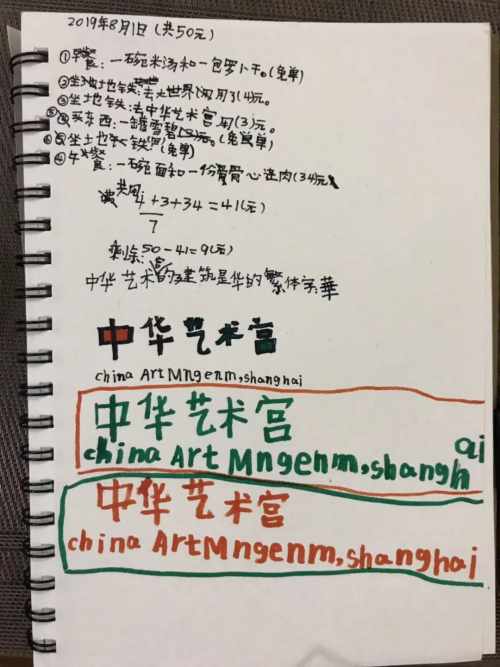 2019年8月1日(共50元)
①早餐:一碗米汤和一包罗卜干。(免单)
②坐地铁:去大世界用了(4)元。
③坐地铁:去中华艺术宫用(3)元。
买东西:一罐雪碧(3)元。(免单)
⑥坐地铁(免单)
午餐:一碗面和一份骨肉(34)元
共用
4+3+34=41(元)
7
剩余:50-41=9(元)
中华艺术宫的建筑是华的繁体字:華
中华艺术宫
china Art Mngenm,shanghai
中华艺术宫
china Art Mngenm,shanghai
中华艺术宫
china Art Mngenm,shanghai